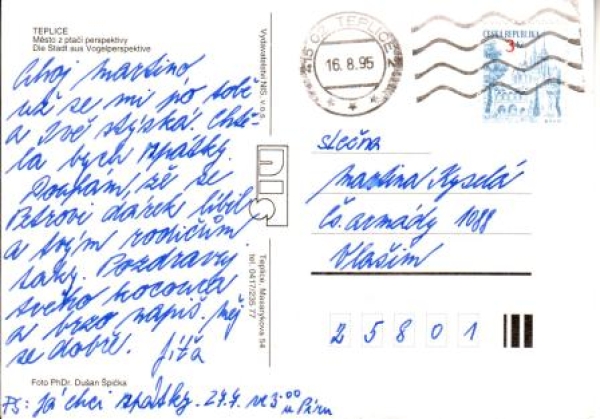 TEPLICE
Město z ptačí perspektivy
Die Stadt aus Vogelperspektive
Ahoj Martino
už se mi po tobě
a Zvě stýská. Chtě-
la bych zpátky.
Doufám, že se
Petrovi dárek líbil
a tvým rodičům
taky. Pozdravuj
svého kocoura
a brzo napiš. Měj
se dobře. Jiťa
Foto PhDr. Dušan Špička
PS: já chci zpátky. v 3.00
Vydavatelství NIS v.o.s.
NIS
Teplice, Masarykova 54
tel. 0417/235 77
415 02 TEPLICE 2
16.8.95
ČESKÁ REPUBLIKA
3 Kč
slečna
Martina Kyselá
Čs. armády 1088
Vlašim
25801